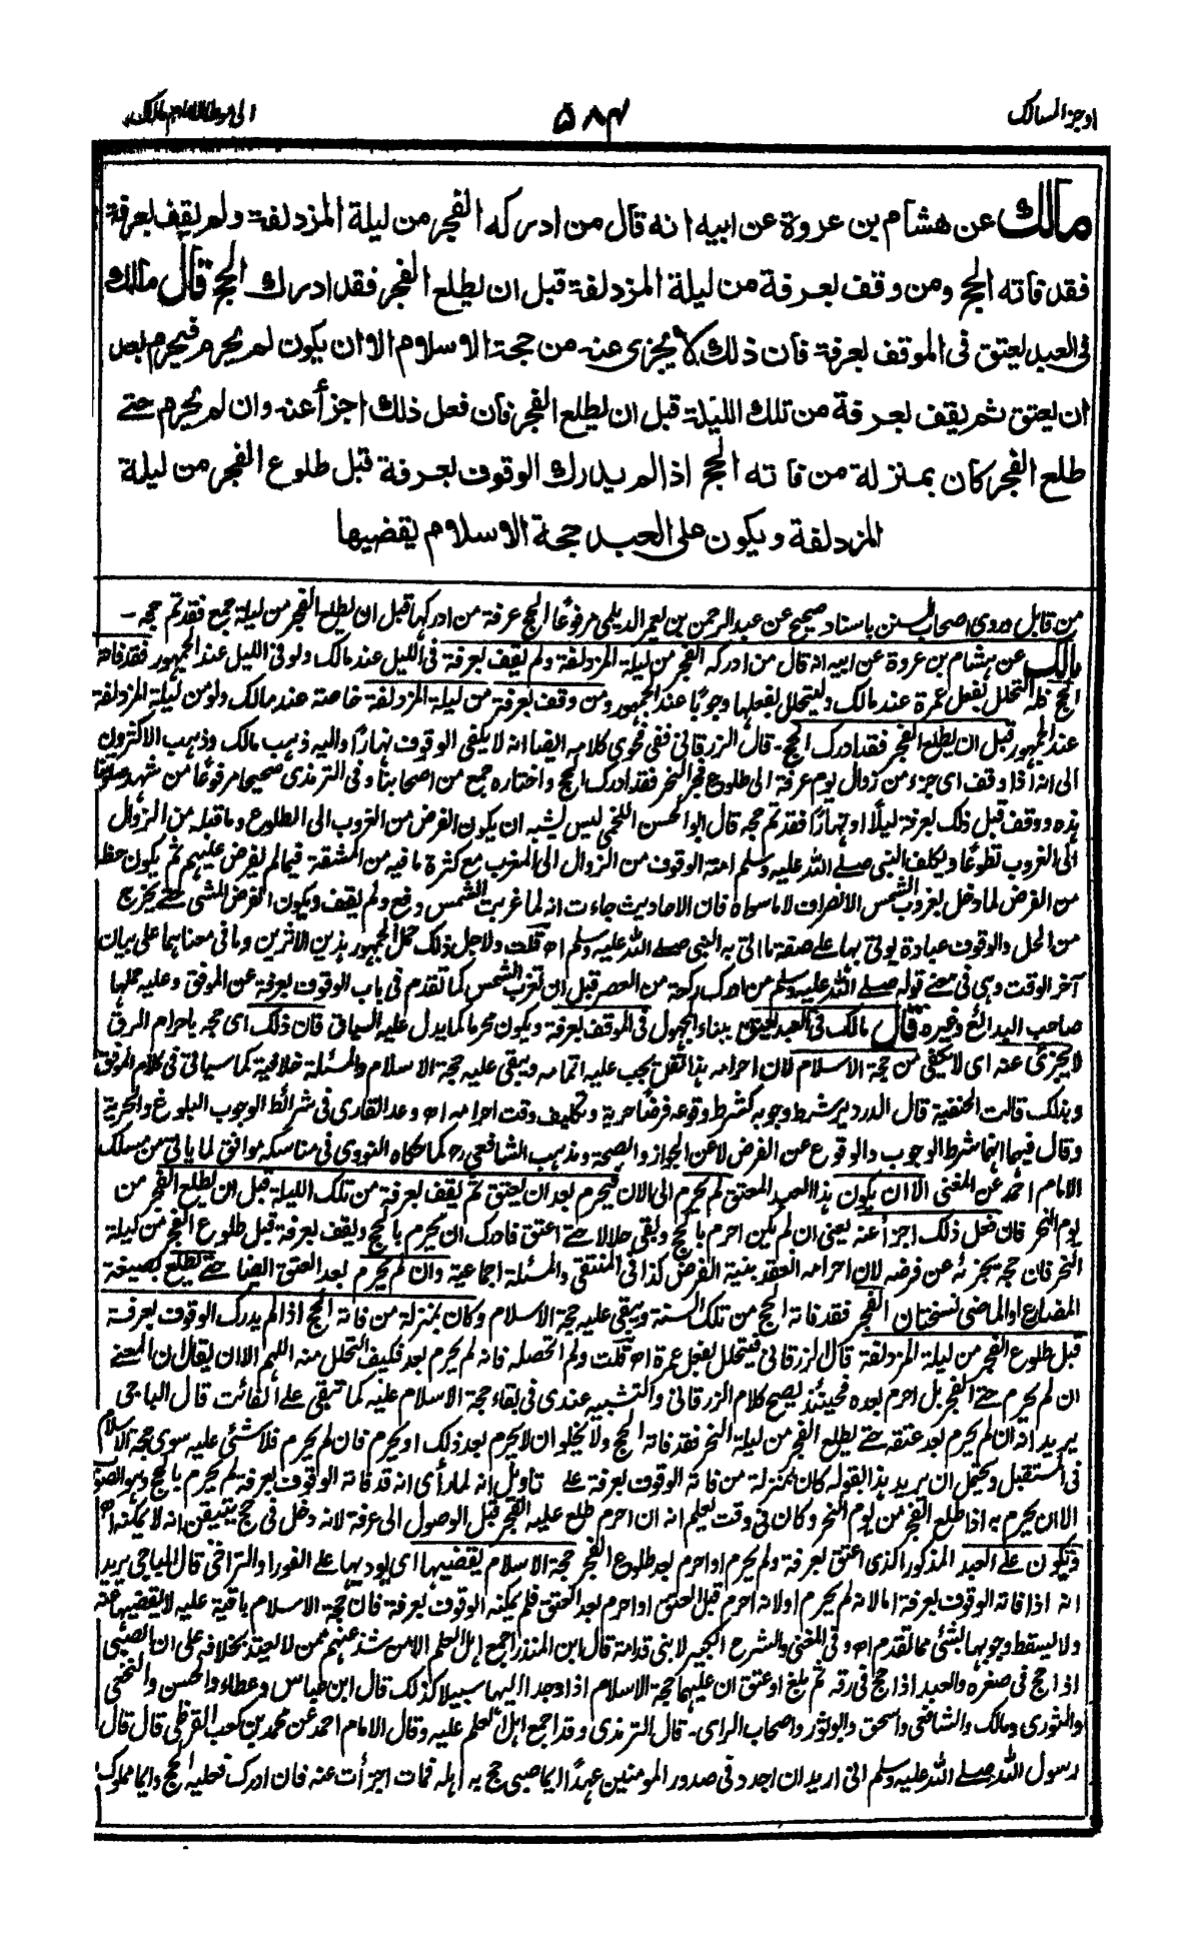 اوجز المسالك
٥٨٤
الى موطا الامام مالك
مالك عن هشام بن عروة عن ابيه انه قال من ادركه الفجر من ليلة المزدلفة ولم يقف بعرفة
فقد فاته الحج ومن وقف بعرفة من ليلة المزدلفة قبل ان يطلع الفجر فقد ادرك الحج قال مالك
فى العبد يعتق فى الموقف بعرفة فان ذلك لا يجزى عنه من حجة الاسلام الا ان يكون لم يحرم فيحرم بعد
ان يعتق ثم يقف بعرفة من تلك الليلة قبل ان يطلع الفجر فان فعل ذلك اجزأ عنه وان لم يحرم حتى
طلع الفجر كان بمنزلة من فاته الحج اذا لم يدرك الوقوف بعرفة قبل طلوع الفجر من ليلة
المزدلفة ويكون على العبد حجة الاسلام يقضيها
من قابل وروى اصحاب السنن باسناد صحيح عن عبد الرحمن بن يعمر الديلى مرفوعًا الحج عرفة من ادركها قبل ان يطلع الفجر من ليلة جمع فقد تم حجه -
مالك عن هشام بن عروة عن ابيه انه قال من ادركه الفجر من ليلة المزدلفة ولم يقف بعرفة فى الليل عند مالك ولو فى الليل عند الجمهور فقد فاته
الحج فله التحلل بفعل عمرة عند مالك ويتحلل بفعلها وجوبًا عند الجمهور ومن وقف بعرفة من ليلة المزدلفة خاصة عند مالك ولو من ليلة المزدلفة
عند الجمهور قبل ان يطلع الفجر فقد ادرك الحج - قال الزرقانى ففى فحوى كلامه ايضا انه لا يكفى الوقوف نهارًا واليه ذهب مالك وذهب الاكثرون
الى انه اذا وقف اى جزء من زوال يوم عرفة الى طلوع فجر النحر فقد ادرك الحج واختاره جمع من اصحابنا وفى الترمذى صحيحا مرفوعًا من شهد صلوتنا
هذه ووقف قبل ذلك بعرفة ليلًا او نهارًا فقد تم حجه قال ابو الحسن اللخمى ليس يشبه ان يكون الفرض من الغروب الى الطلوع وما قبله من الزوال
الى الغروب تطوعًا ويكلف النبى صلے الله عليه وسلم امته الوقوف من الزوال الى المغرب مع كثرة ما فيه من المشقة فيما لم يفرض عليهم ثم يكون حظها
من الفرض لما دخل بغروب الشمس الانصراف لا ما سواه فان الاحاديث جاءت انه لما غربت الشمس دفع ولم يقف ويكون الفرض المشى حتے يخرج
من الحل والوقوف عبادة يوتى بها على صفة ما اتى به النبى صلے الله عليه وسلم اھ قلت ولاجل ذلك حمل الجمهور هذين الاثرين وما فى معناهما على بيان
آخر الوقت وهى فى معنے قوله صلے الله عليه وسلم من ادرك ركعة من العصر قبل ان تغرب الشمس كما تقدم فى باب الوقوف بعرفة عن الموفق وعليه حملها
صاحب البدائع وغيره قال مالك فى العبد يعتق ببناء المجهول فى الموقف بعرفة ويكون محرما كما يدل عليه السياق فان ذلك اى حجه باحرام الرق
لا يجزئ عنه اى لا يكفى من حجة الاسلام لان احرامه هذا نفل يجب عليه اتمامه ويبقى عليه حجة الاسلام والمسئلة خلافية كما سياتى فى كلام الموفق
وبذلك قالت الحنفية قال الدردير شرط وجوبه كشرط وقوعه فرضًا حرية وتكليف وقت احرامه اھ وعد القارى فى شرائط الوجوب البلوغ والحرية
وقال فيها انهما شرط الوجوب والوقوع عن الفرض لا عن الجواز والصحة ومذهب الشافعى رح كما حكاه النووى فى مناسكه موافق لما ياتى من مسلك
الامام احمد عن المغنى الا ان يكون هذا العبد المعتق لم يحرم الى الان فيحرم بعد ان يعتق ثم يقف بعرفة من تلك الليلة قبل ان يطلع الفجر من
يوم النحر فان فعل ذلك اجزأ عنه يعنى ان لم يكن احرم بالحج وبقى حلالا حتے اعتق فادرك ان يحرم بالحج ويقف بعرفة قبل طلوع الفجر من ليلة
النحر فان حجه يجزئه عن فرضه لان احرامه انعقد بنية الفرض كذا فى المنتقى والمسئلة اجماعية وان لم يحرم بعد العتق ايضا حتے يطلع بصيغة
المضارع او الماضى نسختان الفجر فقد فاته الحج من تلك السنة ويبقى عليه حجة الاسلام وكان بمنزلة من فاته الحج اذا لم يدرك الوقوف بعرفة
قبل طلوع الفجر من ليلة المزدلفة قال الزرقانى فيتحلل بفعل عمرة اھ قلت ولم اتحصله فانه لم يحرم بعد فكيف التحلل منه اللهم الا ان يقال ان المعنے
ان لم يحرم حتے الفجر بل احرم بعده فحينئذ يصح كلام الزرقانى والتشبيه عندى فى بقاء حجة الاسلام عليه كما تبقى على الفائت قال الباجى
يريد انه ان لم يحرم بعد عتقه حتے يطلع الفجر من ليلة النحر فقد فاته الحج ولا يخلو ان لا يحرم بعد ذلك او يحرم فان لم يحرم فلا شئى عليه سوى حجة الاسلام
فى المستقبل ويحتمل ان يريد بذا القوله كان بمنزلة من فاته الوقوف بعرفة على تاويل انه لما رأى انه قد فاته الوقوف بعرفة لم يحرم بالحج وهو الصواب
الا ان يحرم به اذا طلع الفجر من يوم النحر وكان فى وقت يعلم انه ان احرم طلع عليه الفجر قبل الوصول الى عرفة لانه دخل فى حج يتيقن انه لا يمكنه اھ
ويكون على العبد المذكور الذى اعتق بعرفة ولم يحرم او احرم بعد طلوع الفجر حجة الاسلام يقضيها اى يوديها على الفور او التراخى قال الباجى يريد
انه اذا فاته الوقوف بعرفة اما لانه لم يحرم او لانه احرم قبل العتق او احرم بعد العتق فلم يمكنه الوقوف بعرفة فان حجة الاسلام باقية عليه لا يقضيها عنه
ولا يسقط وجوبها بشئى مما تقدم اھ وفى المغنى والشرح الكبير لابنى قدامة قال ابن المنذر اجمع اهل العلم الا من شذ عنهم ممن لا يعتد بخلافه على ان الصبى
اذا حج فى صغره والعبد اذا حج فى رقه ثم بلغ او عتق ان عليهما حجة الاسلام اذا وجد اليها سبيلا كذلك قال ابن عباس وعطاء والحسن والنخعى
والثورى ومالك والشافعى واسحق وابو ثور واصحاب الراى - قال الترمذى وقد اجمع اهل العلم عليه وقال الامام احمد عن محمد بن كعب القرظى قال قال
رسول الله صلے الله عليه وسلم انى اريد ان اجدد فى صدور المومنين عهدًا ايما صبى حج به اهله فمات اجزأت عنه فان ادرك فعليه الحج وايما مملوك